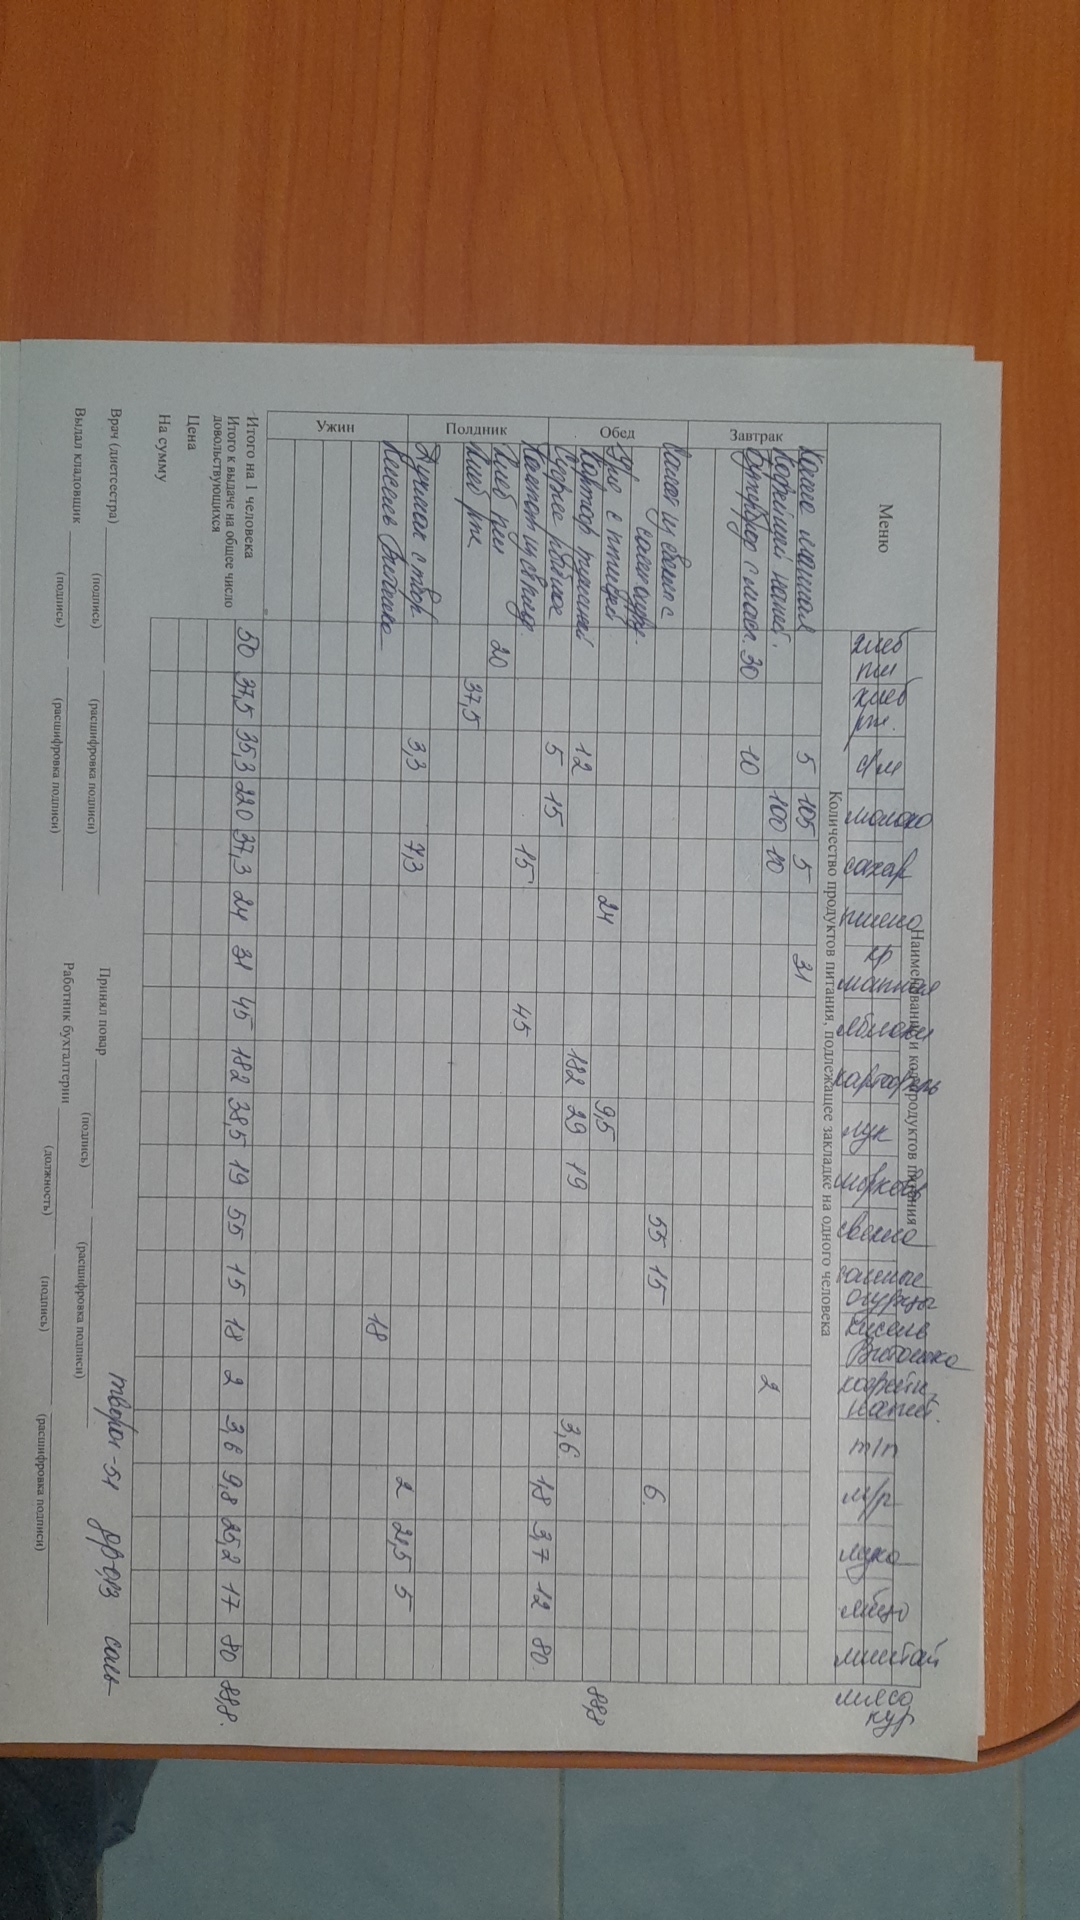 Меню
Наименование и код продуктов питания
хлеб пш
хлеб рж.
с/м
молоко
сахар
пшено
кр манная
яблоки
картофель
лук
морковь
свекла
соленые огурцы
кисель Витошка
кофейн. напит.
т/п
м/р
мука
яйцо
минтай
мясо кур
Количество продуктов питания, подлежащее закладке на одного человека
Завтрак
Каша манная 5 105 5 31
Кофейный напит. 100 10 2
Бутерброд с масл. 30 10
Обед
Салат из свеклы с солен огур. 55 15 6
Суп с птицей 24 9,5 88,8
Картоф тушеный 12 182 29 19 3,6
Суфле рыбное 5 15 1,8 3,7 12 80
Компот из св. фрукт 15 45
Хлеб пш 20
Хлеб рж 37,5
Полдник
с твор. 3,3 7,3 2 21,5 5
Кисель Витошка 18
Ужин
Итого на 1 человека
Итого к выдаче на общее число довольствующихся
50 37,5 35,3 220 37,3 24 31 45 182 38,5 19 55 15 18 2 3,6 9,8 25,2 17 80 88,8.
Цена
На сумму
творог-51 др-0,3 соль-
Врач (диетсестра)
(подпись) (расшифровка подписи)
Принял повар
(подпись) (расшифровка подписи)
Выдал кладовщик
(подпись) (расшифровка подписи)
Работник бухгалтерии
(должность) (подпись) (расшифровка подписи)